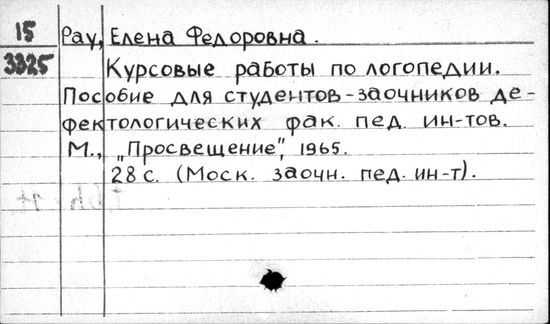 15
3325
Рау, Елена Федоровна.
Курсовые работы по логопедии.
Пособие для студентов-заочников де-
фектологических фак. пед. ин-тов.
М., „Просвещение", 1965.
28 с. (Моск. заочн. пед. ин-т).